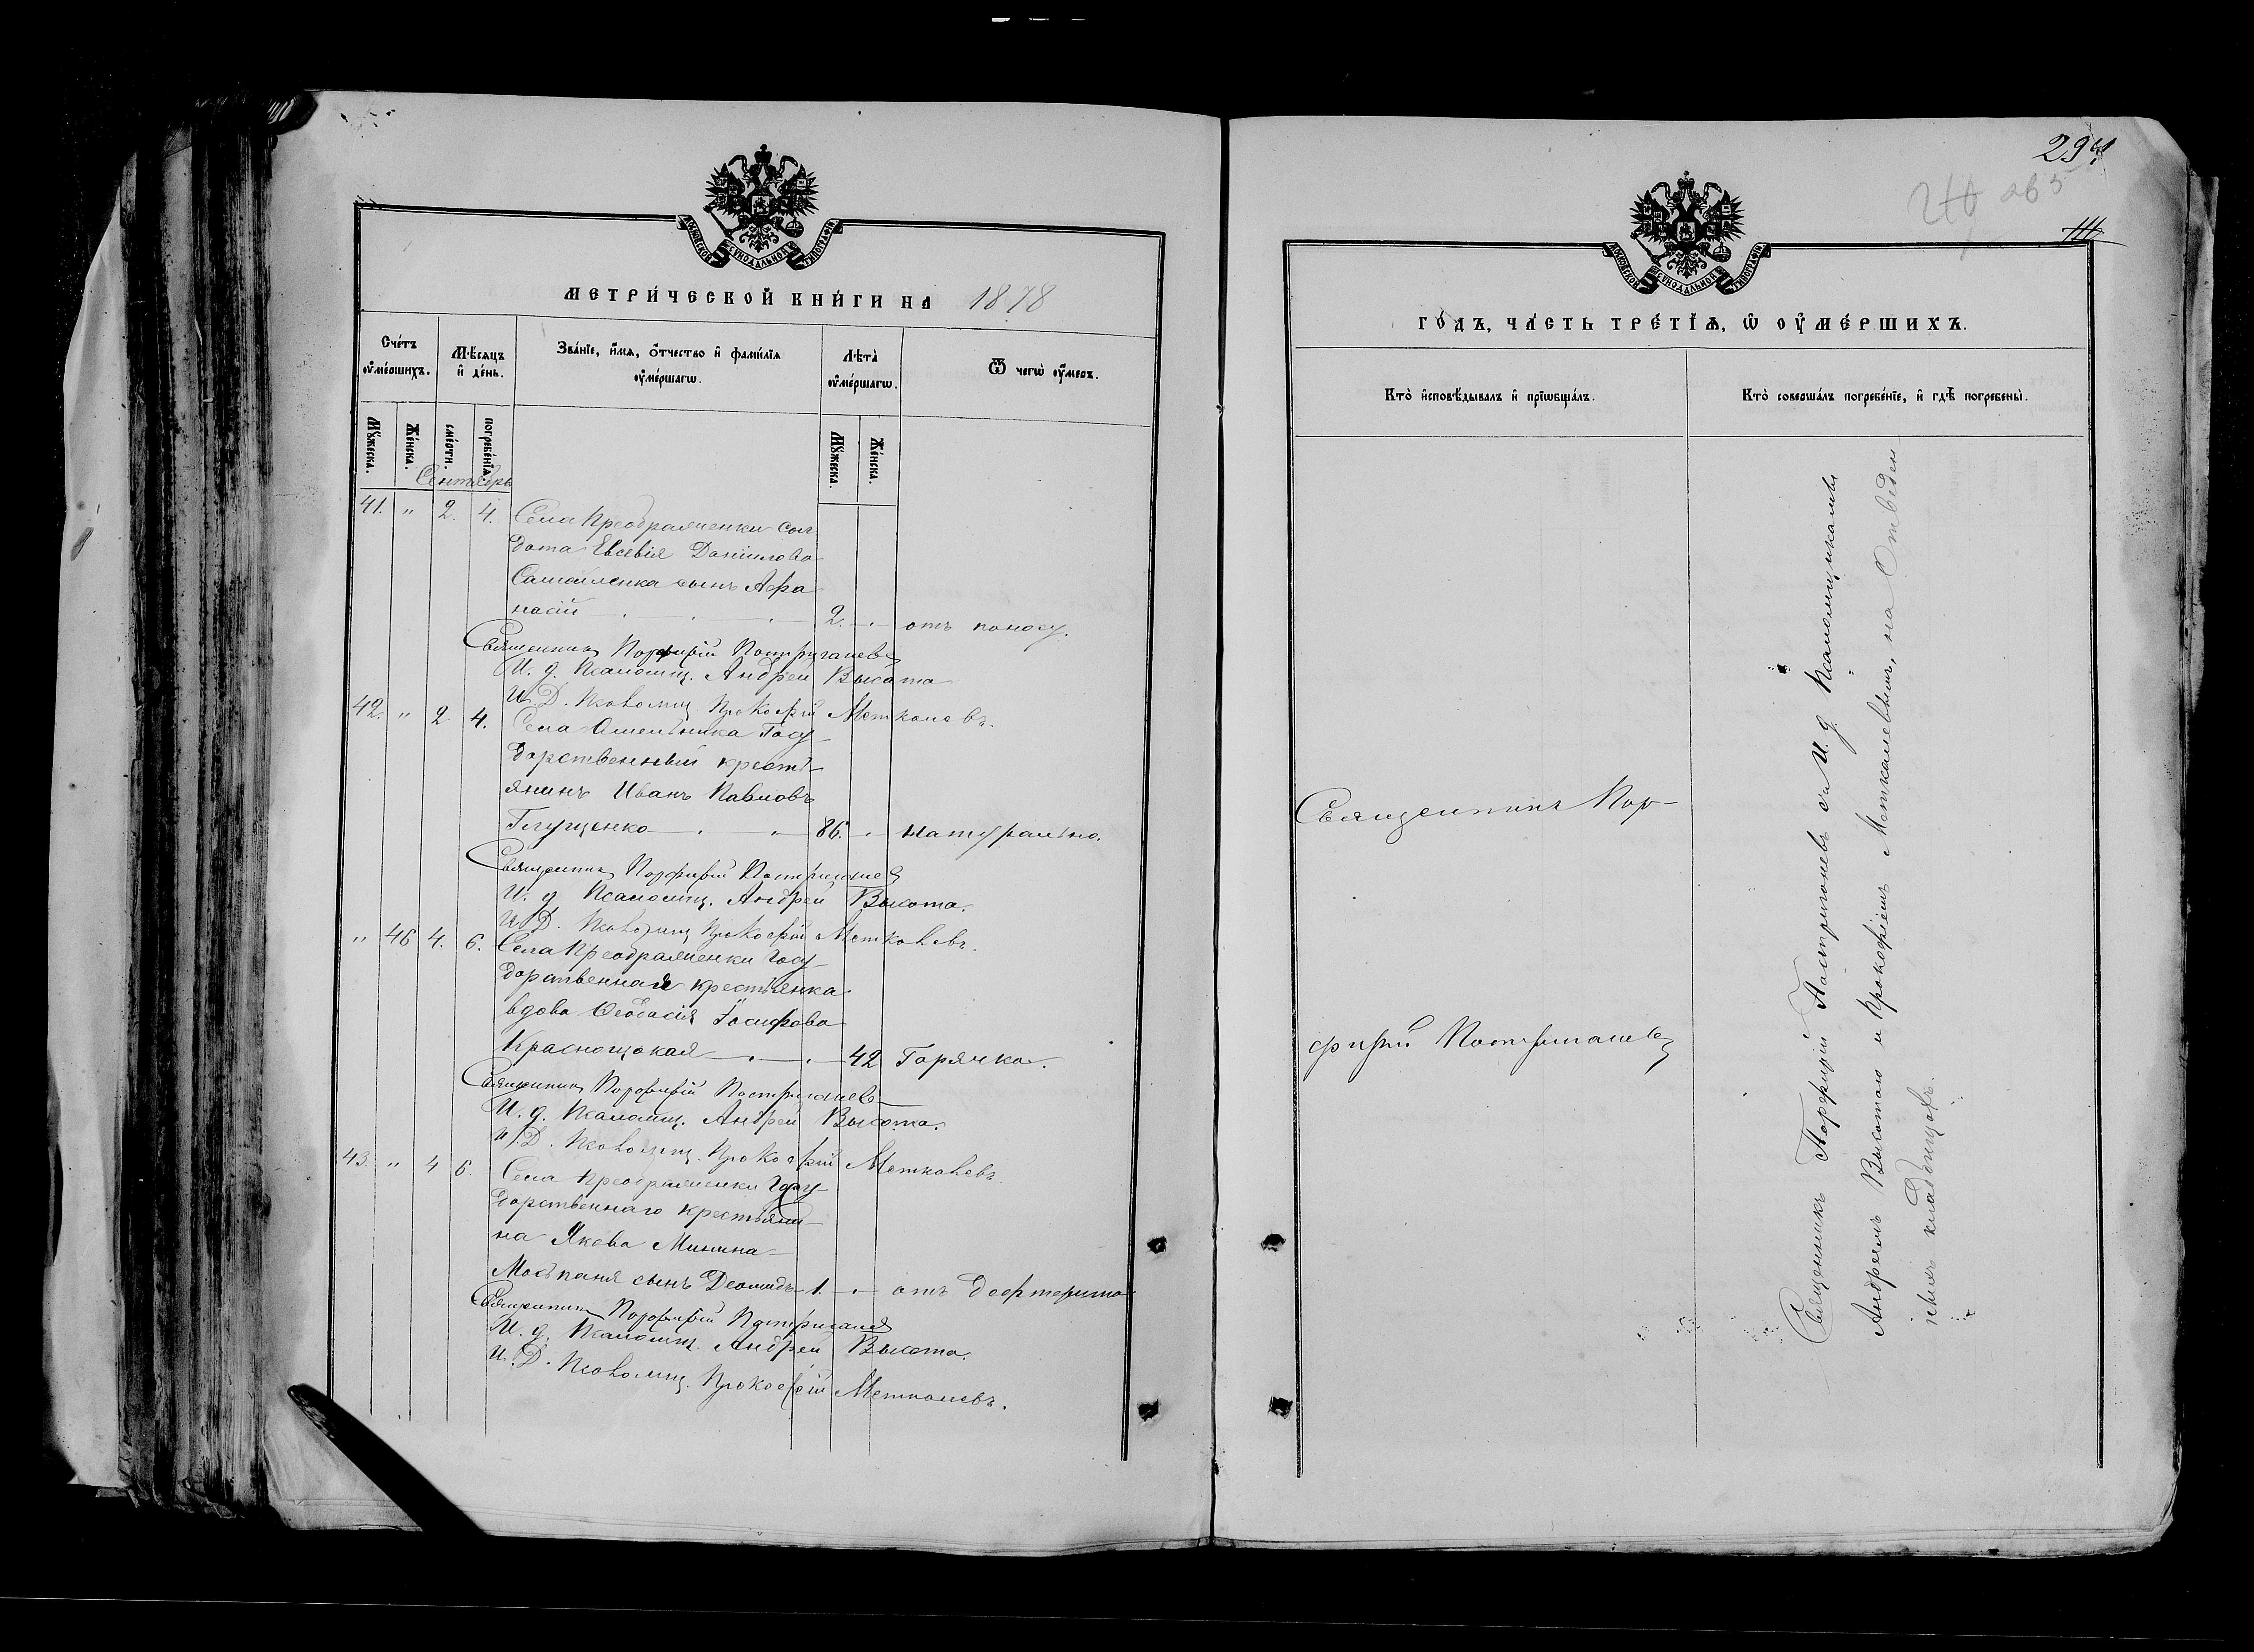 МЕТРИ́ЧЕСКОЙ КНИ́ГИ НА 1878
Сче́тъ оу҆ме́ршихъ.
Мѣ́сяцъ и҆ де́нь.
Зва́нїе, и҆́мѧ, ѻ҆́тчество и҆ фами́лїѧ оу҆ме́ршагѡ.
Лѣ́та̀ оу҆ме́ршагѡ.
Ѿ чегѡ̀ оу҆́меръ.
Мꙋ́жеска.
Же́нска.
сме́рти.
погребе́нїѧ.
Мꙋ́жеска.
Же́нска.
Сентябрь
41. " 2. 4. Села Преображенки сол
дата Евсевія Данилова
Самойленка сынъ Афа
насій 2. отъ поносу.
Священникъ Порфирій Постригачевъ
И. д. Псаломщ. Андрей Высота
И. Д. Псаломщ. Прокофій Меткалевъ.
42. " 2. 4. Села Омельника Госу
дарственный кресть
янинъ Иванъ Павловъ
Глущенко 86. натурально.
Священникъ Порфирій
И. д. Псаломщ. Андрей Высота.
И. Д. Псаломщ. Прокофій Меткалевъ.
" 46 4. 6. Села Преображенки Госу
дарственная крестьянка
вдова Феодосія Іосифова
Краснощокая 42 Горячка.
Священникъ Порфирій
И. д. Псаломщ. Андрей Высота.
И. Д. Псаломщ. Прокофій Меткалевъ.
43. " 4 6. Села Преображенки Госу
дарственнаго крестьяни
на Якова Минина
сынъ Деомидъ 1. отъ
Священникъ Порфирій
И. д. Псаломщ. Андрей Высота.
И. Д. Псаломщ. Прокофій Меткалевъ.
294
265
ГО́ДЪ, ЧА́СТЬ ТРЕ́ТЇѦ, Ѡ҆ ОУ҆МЕ́РШИХЪ.
Кто̀ и҆сповѣ́дывалъ и҆ прїѡбща́лъ.
Кто̀ соверша́лъ погребе́нїе, и҆ гдѣ̀ погребены̀.
Священникъ Пор-
фирій
Священникъ Порфирій съ И. д. Псаломщиками
Андреемъ Высотою и Прокофіемъ Меткалевымъ, на Отведен
ныхъ кладбищахъ.